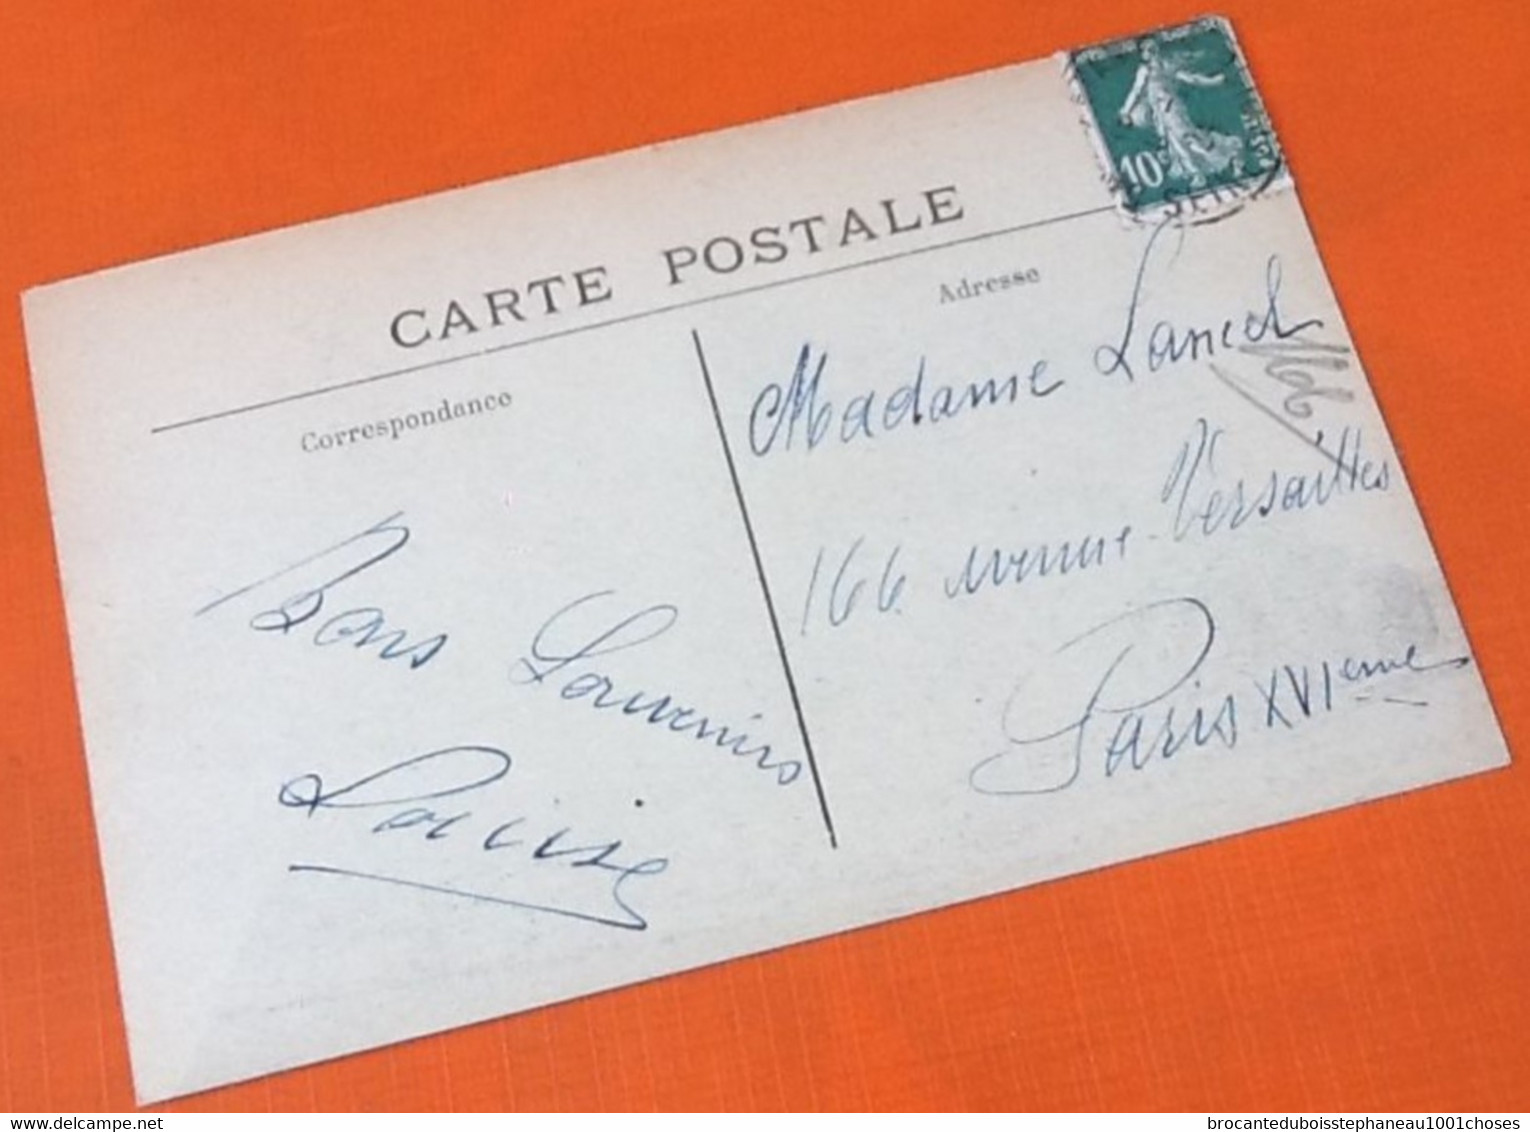 CARTE POSTALE
Correspondance
Adresse
10c
SEINE
Madame Lancel
166 Avenue Versailles
Paris XVIeme
Bons Souvenirs
Louise
www.delcampe.net
brocanteduboisstephaneau1001choses